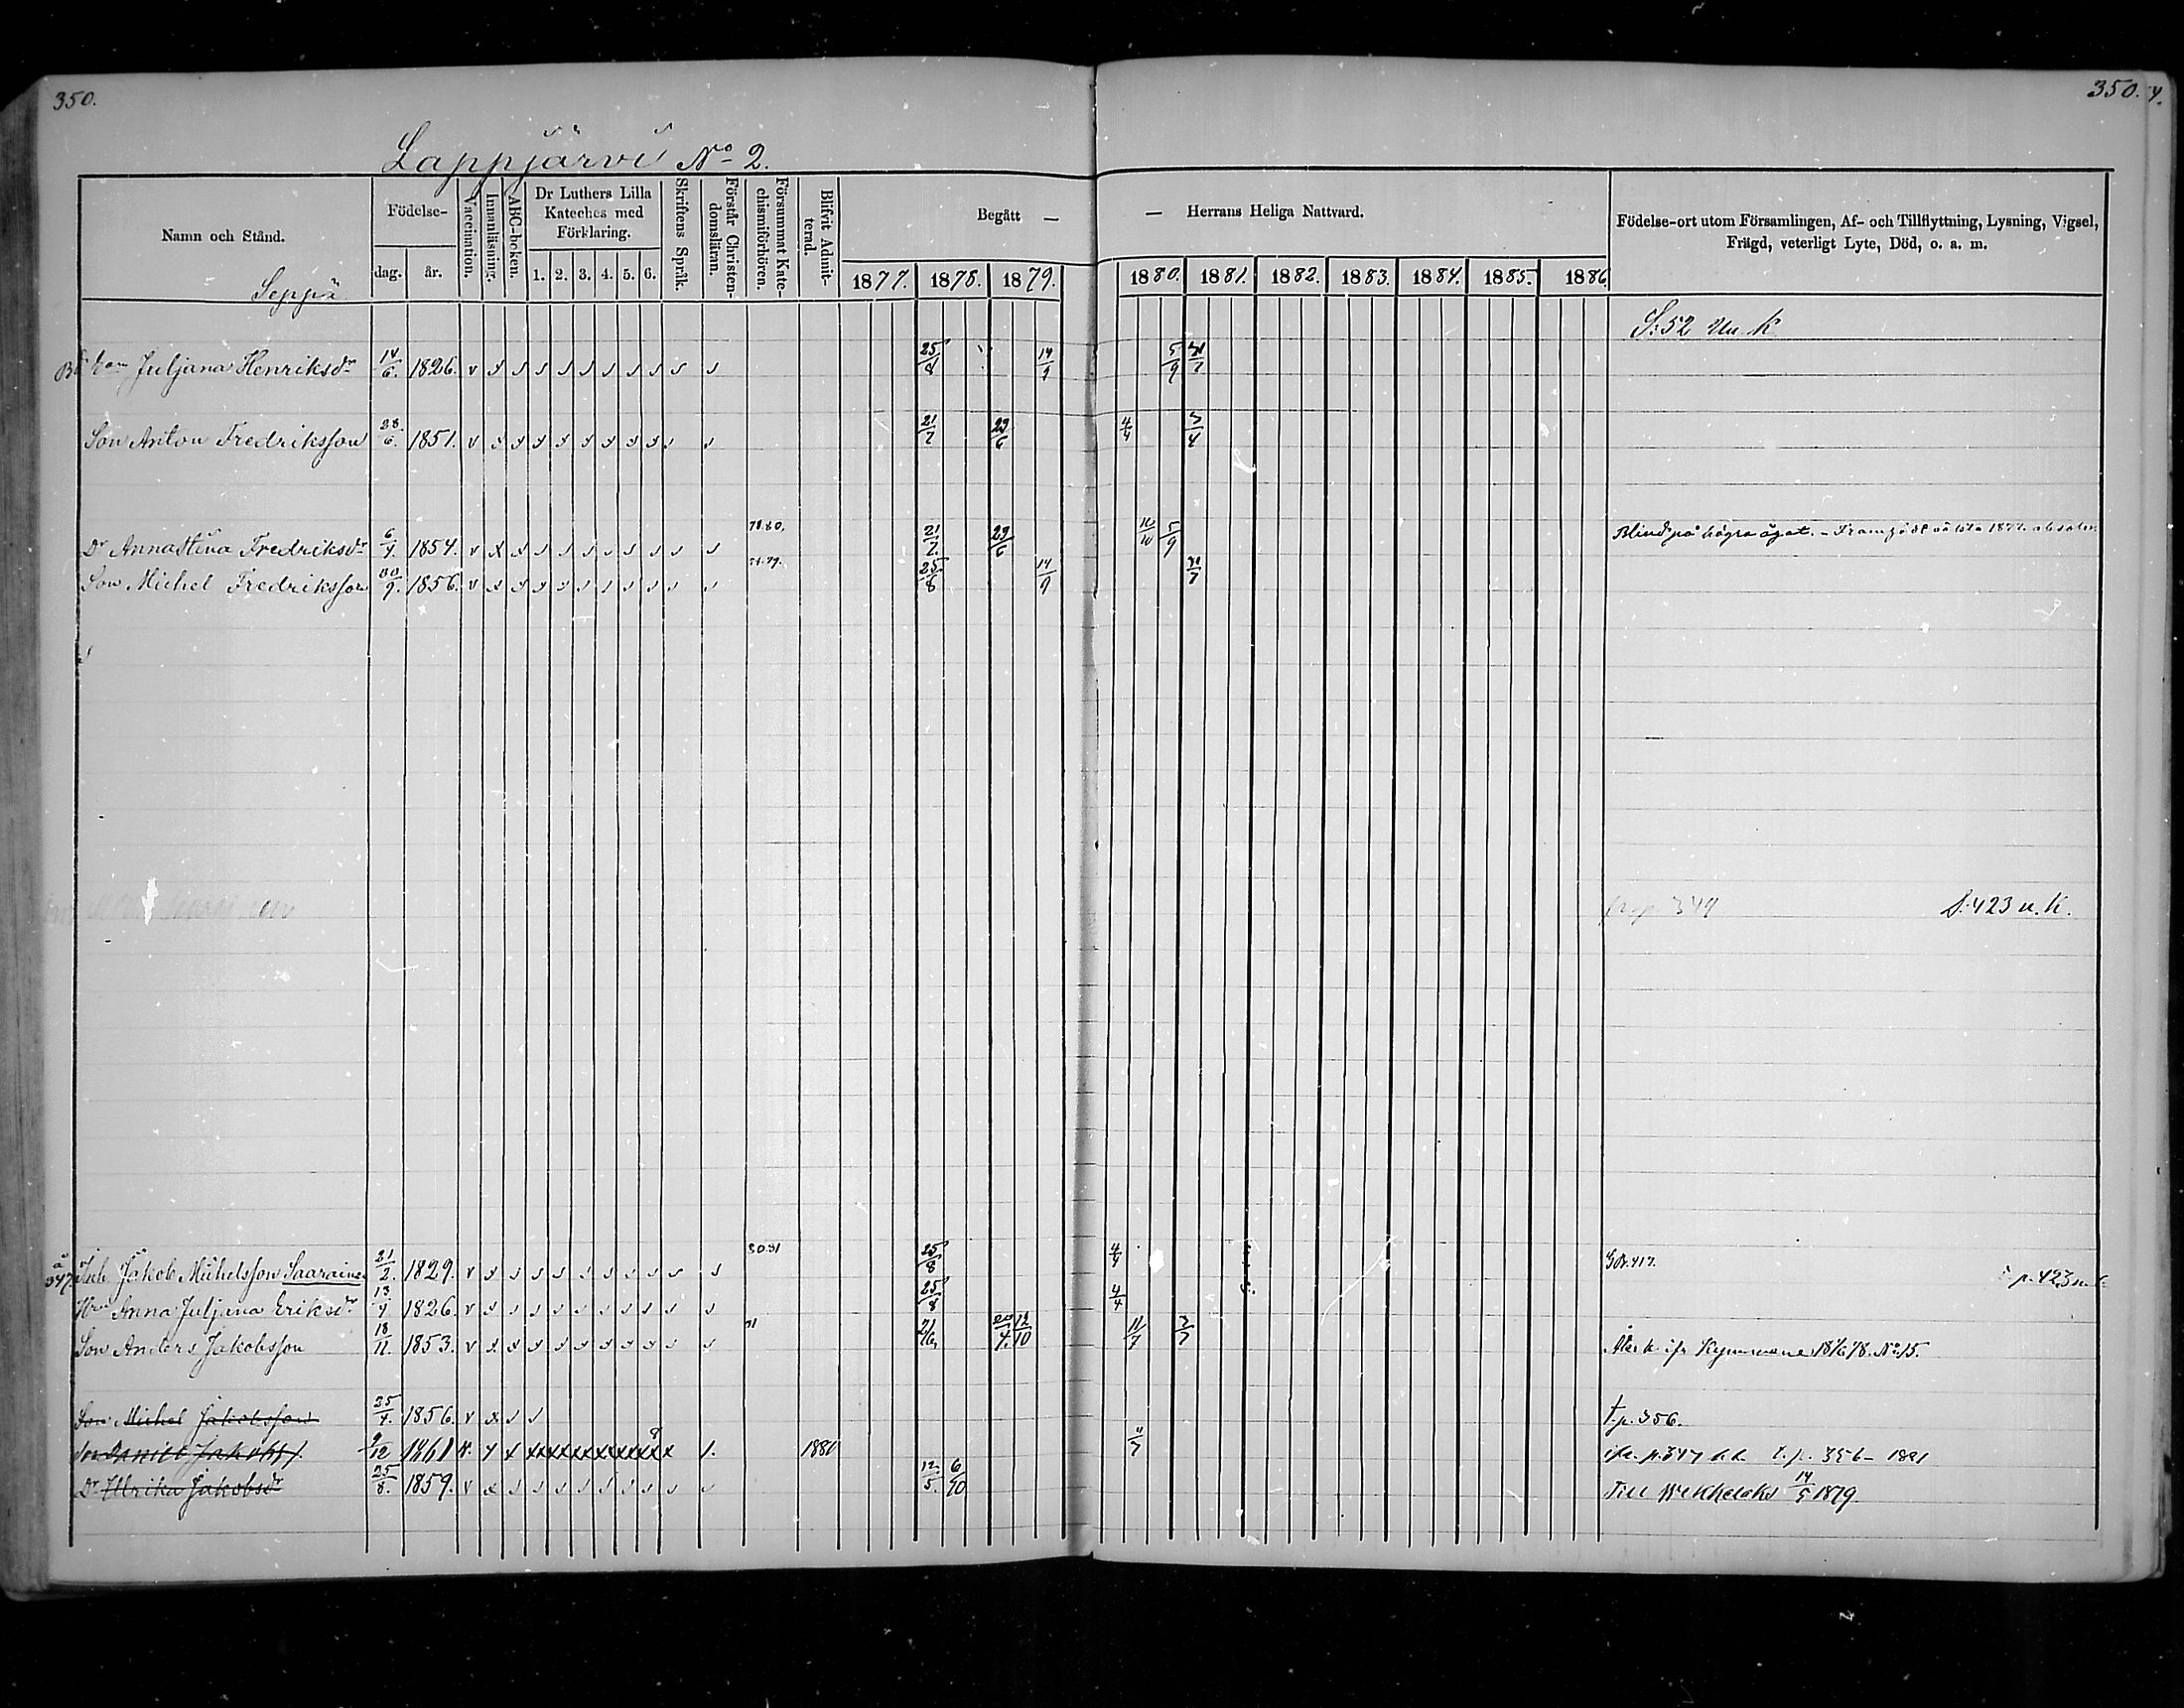 350.
350.
Lappjärvi No 2.
Namn och Stånd.
Födelse-
dag.
år.
Vaccination.
Innanläsning.
ABC-boken.
Dr Luthers Lilla Kateches med Förklaring.
1. 2. 3. 4. 5. 6.
Skriftens Språk.
Förstår Christendomsläran.
Försummat Katechismiförhören.
Blifvit Admitterad.
Begått —
— Herrans Heliga Nattvard.
1877. 1878. 1879. 1880. 1881. 1882. 1883. 1884. 1885. 1886
Födelse-ort utom Församlingen, Af- och Tillflyttning, Lysning, Vigsel,
Frägd, veterligt Lyte, Död, o. a. m.
Seppä
S: 52 u. K
Juljana Henriksdr 14/6. 1826. v 25/8 14/9 5/9
Son Anton Fredriksson 28/6. 1851. v 21/7 29/6 4/4 3/4
78.80.
Dr Annastina Fredriksdr 6/7. 1854. v 21/7 29/6 10/10 5/9 Blind på högra ögat.
Son Michel Fredriksson 9. 1856. v 25/8 14/9 31/7
349 S. 423 u. K.
347. Jakob Michelsson Saarainen 21/2. 1829. v 25/8 4/4 p. 423
Hru Anna Juljana Eriksdr 13/4 1826. v 25/8 4/4
Son Anders Jakobsson 18/11. 1853. v 12/10 11/7 3/7 No 15.
Son Michel Jakobsson 25/4. 1856. v t. p. 356.
Son Daniel Jakobss. 9/12 1861 1880 11/7 ifr. p. 347 t. p. 356 - 1881
Dr Ulrika Jakobsdr 25/8. 1859. v 12/5. 6/10 Till Wekkelaks 14/5 1879.